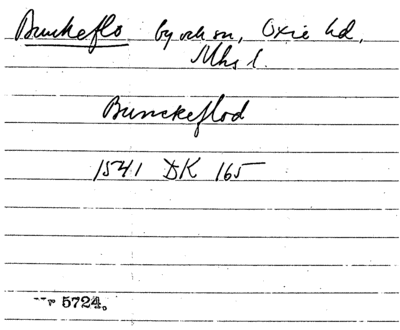 Bunkeflo by och sn, Oxie hd,
Mhs l.
Bunckeflod
1541 DK 165
nr 5724.